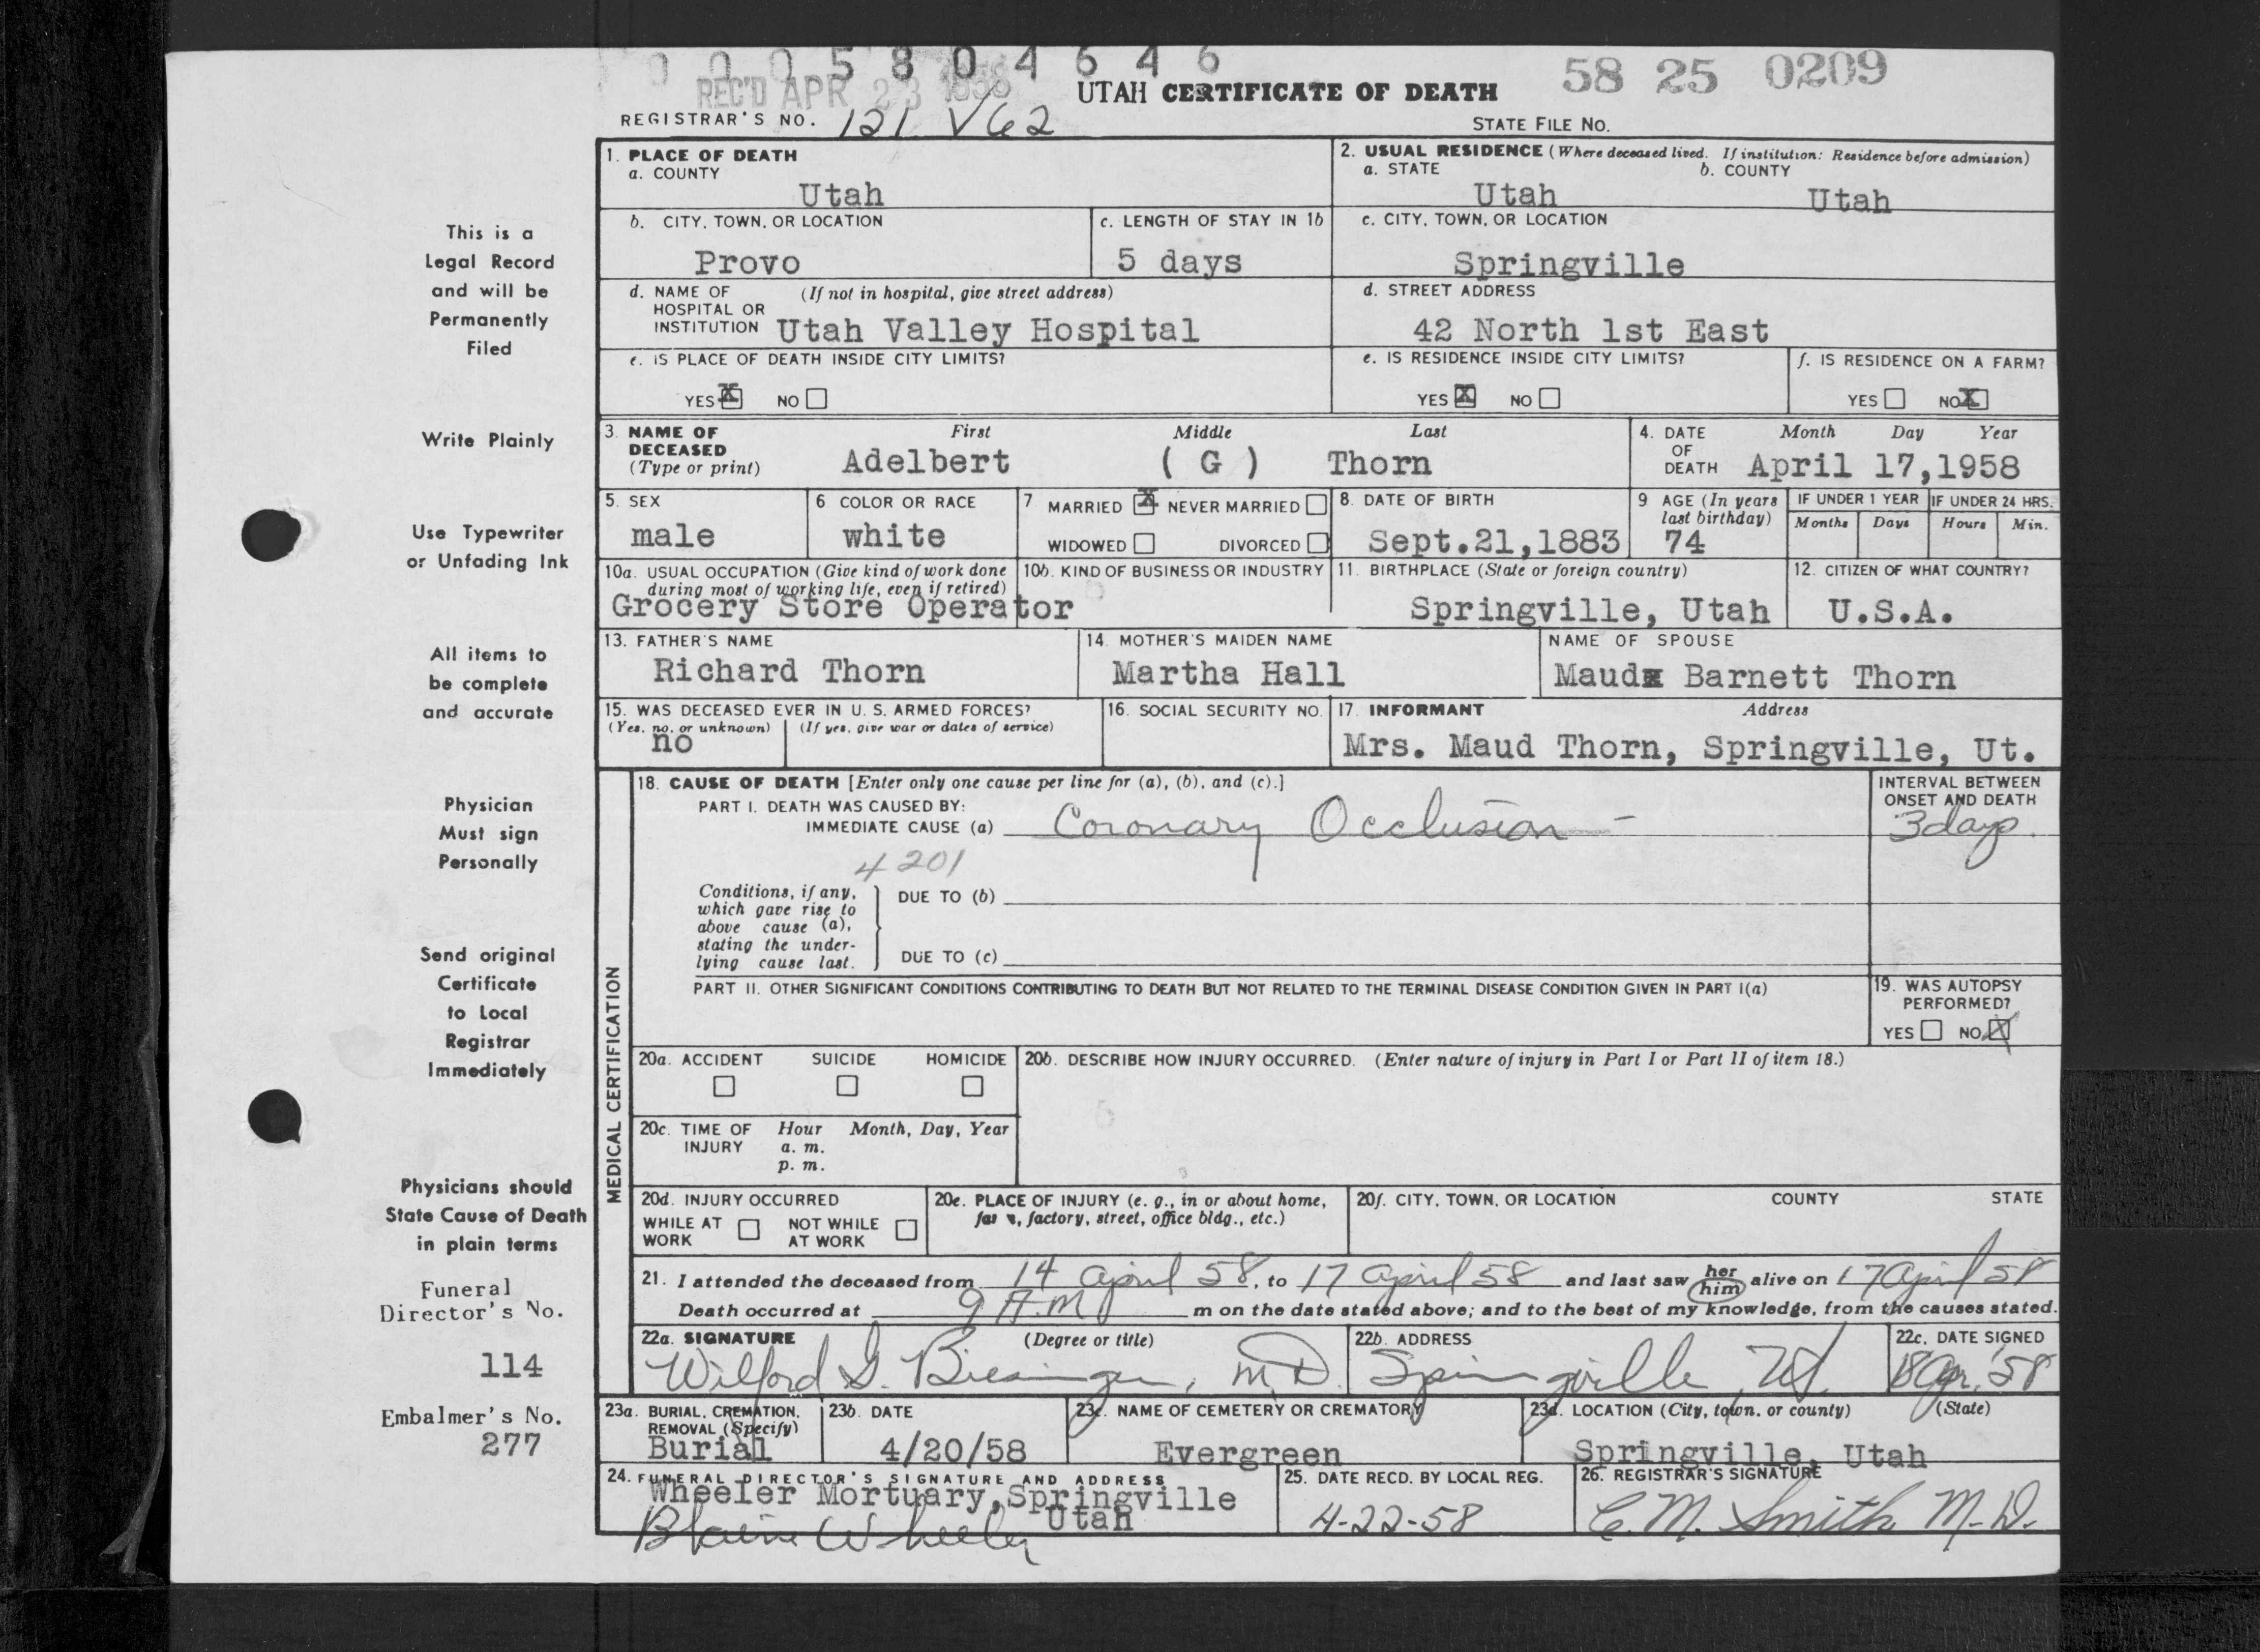 0 0 0 5 8 0 4 6 4 6
REC'D APR 23 1958
58 25 0209
UTAH CERTIFICATE OF DEATH
REGISTRAR'S NO. 121 V62
STATE FILE NO.
1. PLACE OF DEATH
a. COUNTY
Utah
2. USUAL RESIDENCE (Where deceased lived. If institution: Residence before admission)
a. STATE
Utah
b. COUNTY
Utah
b. CITY, TOWN, OR LOCATION
Provo
c. LENGTH OF STAY IN 1b
5 days
c. CITY, TOWN, OR LOCATION
Springville
d. NAME OF HOSPITAL OR INSTITUTION
(If not in hospital, give street address)
Utah Valley Hospital
d. STREET ADDRESS
42 North 1st East
e. IS PLACE OF DEATH INSIDE CITY LIMITS?
YES X NO
e. IS RESIDENCE INSIDE CITY LIMITS?
YES X NO
f. IS RESIDENCE ON A FARM?
YES NO X
3. NAME OF DECEASED
(Type or print)
First Middle Last
Adelbert ( G ) Thorn
4. DATE OF DEATH
Month Day Year
April 17,1958
5. SEX
male
6 COLOR OR RACE
white
7 MARRIED X NEVER MARRIED
WIDOWED DIVORCED
8. DATE OF BIRTH
Sept.21,1883
9 AGE (In years last birthday)
74
IF UNDER 1 YEAR
Months Days
IF UNDER 24 HRS.
Hours Min.
10a. USUAL OCCUPATION (Give kind of work done during most of working life, even if retired)
Grocery Store Operator
10b. KIND OF BUSINESS OR INDUSTRY
11. BIRTHPLACE (State or foreign country)
Springville, Utah
12. CITIZEN OF WHAT COUNTRY?
U.S.A.
13. FATHER'S NAME
Richard Thorn
14. MOTHER'S MAIDEN NAME
Martha Hall
NAME OF SPOUSE
Maud Barnett Thorn
15. WAS DECEASED EVER IN U. S. ARMED FORCES?
(Yes, no, or unknown)
no
(If yes, give war or dates of service)
16. SOCIAL SECURITY NO.
17. INFORMANT Address
Mrs. Maud Thorn, Springville, Ut.
MEDICAL CERTIFICATION
18. CAUSE OF DEATH [Enter only one cause per line for (a), (b), and (c).]
PART I. DEATH WAS CAUSED BY:
IMMEDIATE CAUSE (a) Coronary Occlusion -
INTERVAL BETWEEN ONSET AND DEATH
3 days
4201
Conditions, if any, which gave rise to above cause (a), stating the underlying cause last.
DUE TO (b)
DUE TO (c)
PART II. OTHER SIGNIFICANT CONDITIONS CONTRIBUTING TO DEATH BUT NOT RELATED TO THE TERMINAL DISEASE CONDITION GIVEN IN PART I(a)
19. WAS AUTOPSY PERFORMED?
YES NO X
20a. ACCIDENT SUICIDE HOMICIDE
20b. DESCRIBE HOW INJURY OCCURRED. (Enter nature of injury in Part I or Part II of item 18.)
20c. TIME OF INJURY
Hour Month, Day, Year
a. m.
p. m.
20d. INJURY OCCURRED
WHILE AT WORK NOT WHILE AT WORK
20e. PLACE OF INJURY (e. g., in or about home, farm, factory, street, office bldg., etc.)
20f. CITY, TOWN, OR LOCATION COUNTY STATE
21. I attended the deceased from 14 April 58, to 17 April 58 and last saw her him alive on 17 April 58
Death occurred at 9 A.M m on the date stated above; and to the best of my knowledge, from the causes stated.
22a. SIGNATURE (Degree or title)
Wilford G. Biesinger, M.D.
22b. ADDRESS
Springville, Ut.
22c. DATE SIGNED
18 Apr. '58
23a. BURIAL, CREMATION, REMOVAL (Specify)
Burial
23b. DATE
4/20/58
23c. NAME OF CEMETERY OR CREMATORY
Evergreen
23d. LOCATION (City, town, or county) (State)
Springville, Utah
24. FUNERAL DIRECTOR'S SIGNATURE AND ADDRESS
Wheeler Mortuary, Springville
Utah
Blaine Wheeler
25. DATE RECD. BY LOCAL REG.
4-22-58
26. REGISTRAR'S SIGNATURE
C. M. Smith M.D.
This is a
Legal Record
and will be
Permanently
Filed
Write Plainly
Use Typewriter
or Unfading Ink
All items to
be complete
and accurate
Physician
Must sign
Personally
Send original
Certificate
to Local
Registrar
Immediately
Physicians should
State Cause of Death
in plain terms
Funeral
Director's No.
114
Embalmer's No.
277